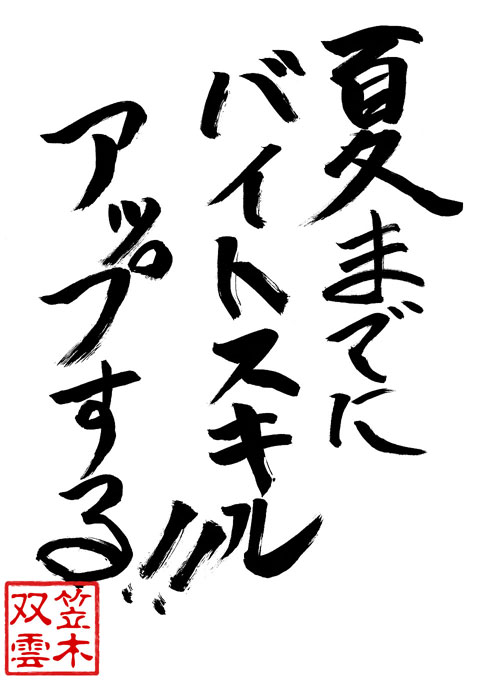 夏までに
バイトスキル
アップする!!
笠木
双雲